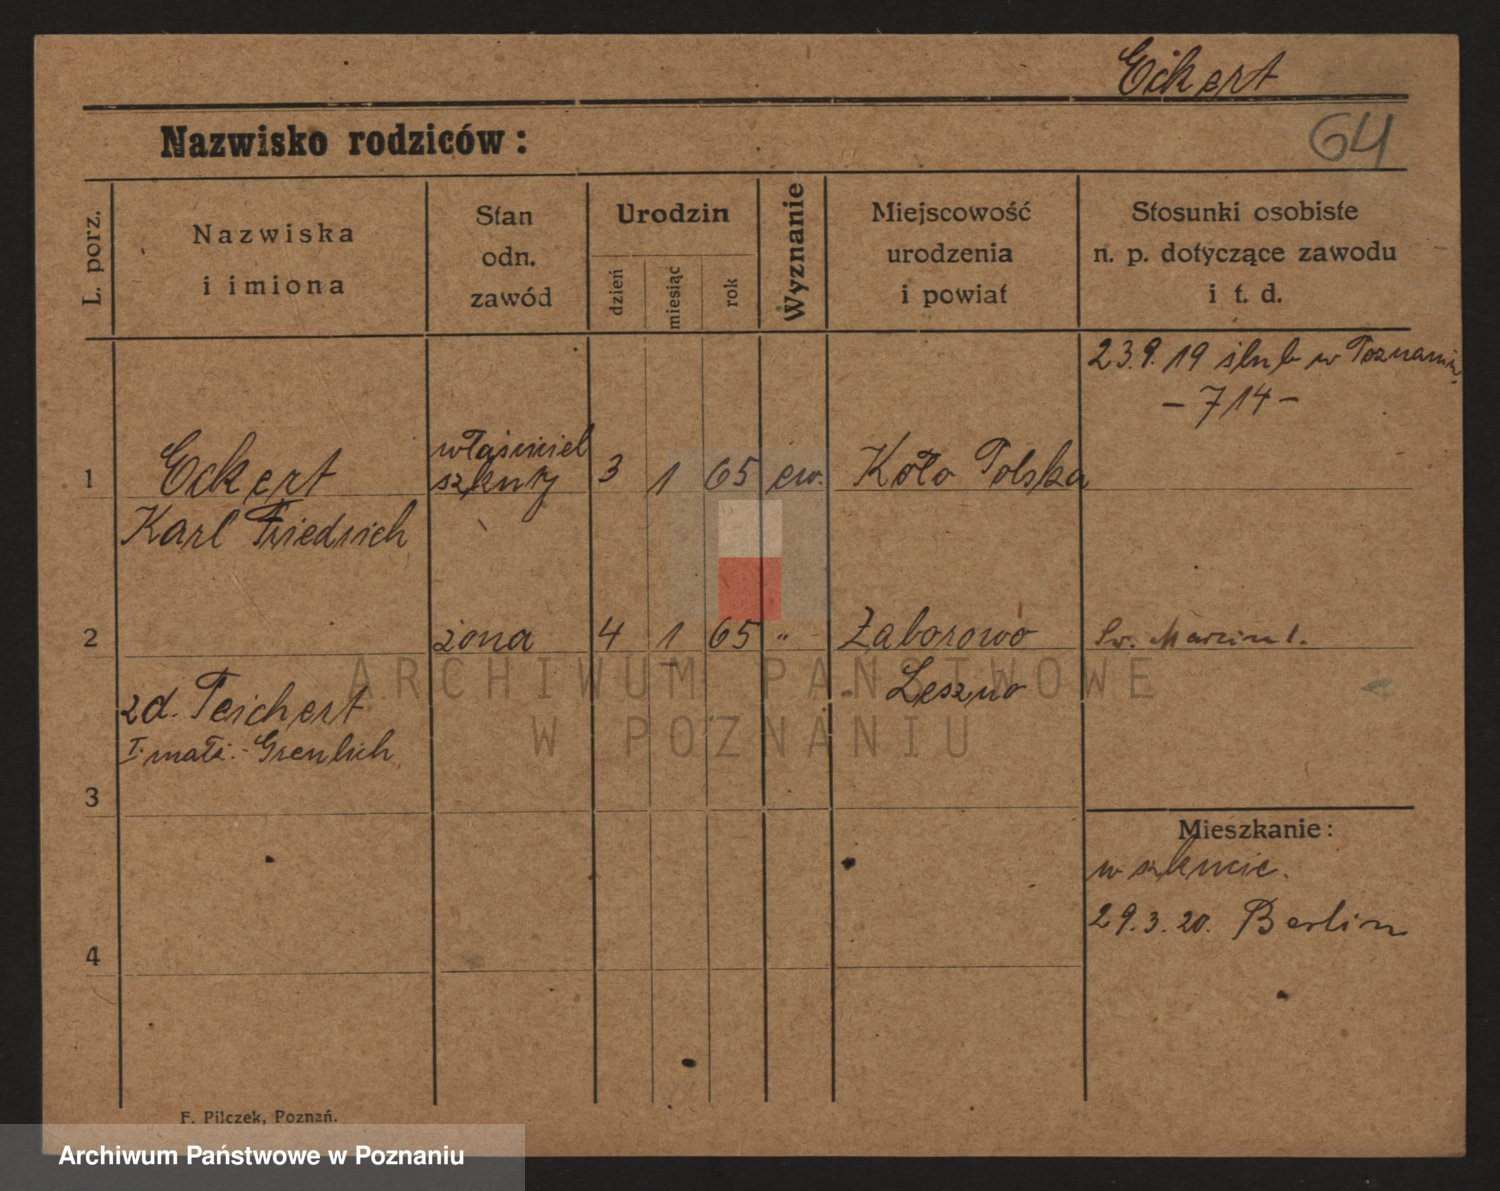 Eckert
Nazwisko rodziców:
64
L. porz.
Nazwiska
i imiona
Stan
odn.
zawód
Urodzin
dzień
miesiąc
rok
Wyznanie
Miejscowość
urodzenia
i powiat
Stosunki osobiste
n. p. dotyczące zawodu
i t. d.
23.9.19 ślub w Poznaniu
- 714 -
właściciel
1 Eckert szkuty 3 1 65 ew. Koło Polska
Karl Friedrich
2 żona 4 1 65 " Zaborowo Św. Marcin 1.
Leszno
zd. Teichert
I. małż.
3
Mieszkanie:
w szkucie.
29.3.20. Berlin
4
F. Pilczek, Poznań.
ARCHIWUM PAŃSTWOWE
W POZNANIU
Archiwum Państwowe w Poznaniu